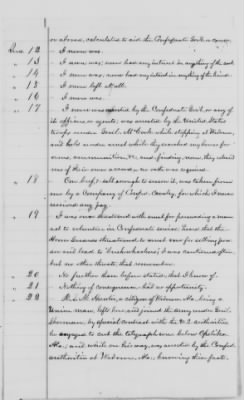 or abroad, calculated to aid the Confederate Gov't, or cause.
Ques 12 I never was.
" 13 I never was; never had any interest in anything of the sort.
" 14 I never was; never had any interest in anything of the kind.
" 15 I never left at all.
" 16 I never was.
" 17 I never was arrested by the Confederate Gov't, or any of
its officers, or agents; was arrested by the United States
troops under Genl. McCook while stopping at Waverly,
and held under arrest while they searched my house for
arms, ammunition, &c. and finding none, they relieved
me of their own accord, no oath was required.
" 18 One buggy, all except to run it, was taken from
me by a Company of Confed. Cavalry, for which I never
received any pay.
" 19 I was once threatened with arrest for persuading a man
not to volunteer in Confederate service. Learned that the
Home Guards threatened to arrest me for selling bacon
and lead to bushwhackers; I was cautioned often
but no other threats that I remember.
" 20 No further than before stated, that I know of.
" 21 Nothing of consequence; had no opportunity.
" 22 R. M. Hardin, a citizen of Waverly Ala. being a
Union man, left here, and joined the army under Genl.
Sherman, by special contract with the U.S. authorities
he engaged to cut the telegraph wire below Opelika,
Ala; and while on his way, was arrested by the Confed
authorities at Waverly, Ala; knowing this fact,